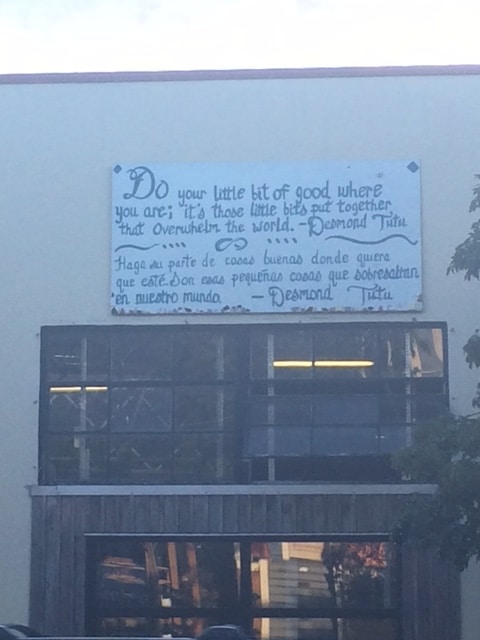 Do your little bit of good where
you are; it's those little bits put together
that overwhelm the world. -Desmond Tutu
Haga su parte de cosas buenas donde quiera
que esté. Son esas pequeñas cosas que sobresaltan
en nuestro mundo. - Desmond Tutu